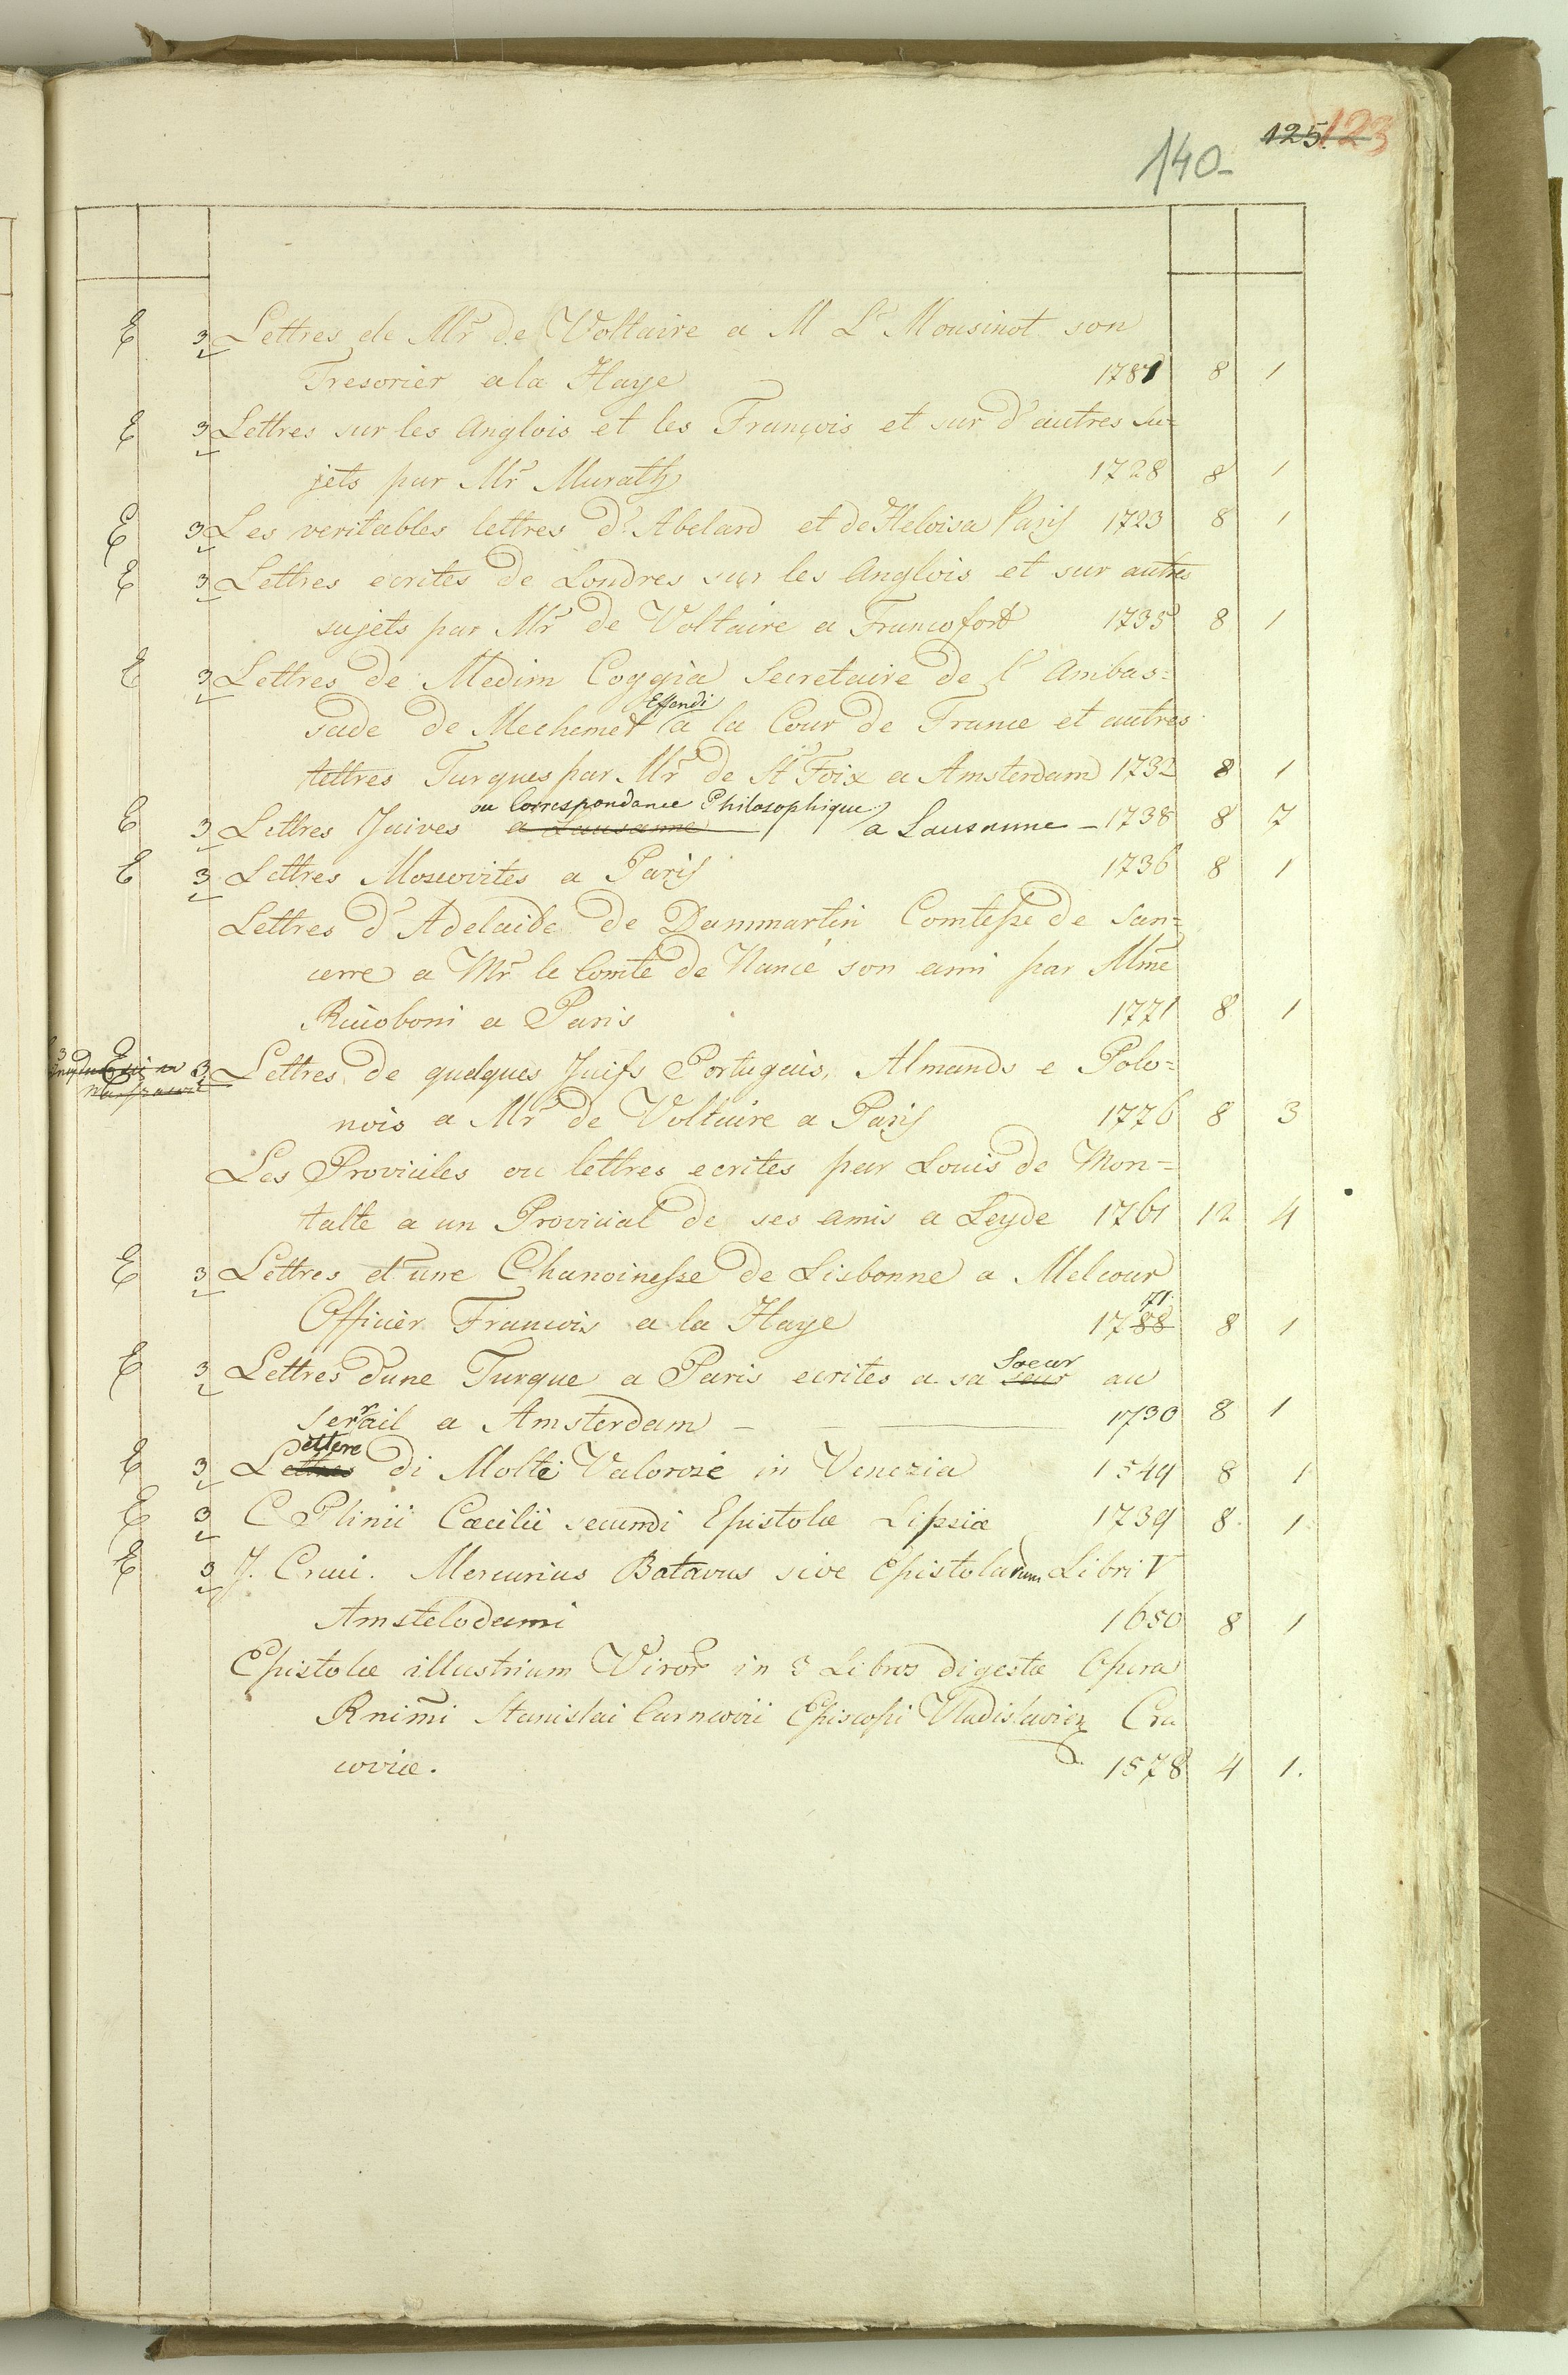 140 125. 123
E 3 Lettres de Mr de Voltaire a M Lr Mousinot son
Tresorier a la Haye 1781 8 1
E 3 Lettres sur les Anglois et les François et sur d'autres su=
jets par Mr Murath 1728 8 1
E 3 Les veritables lettres d'Abelard et de Heloisa Paris 1723 8 1
E 3 Lettres ecrites de Londres sur les Anglois et sur autres
sujets par Mr de Voltaire a Francofort 1735 8 1
E 3 Lettres de Medim Coggia Secretaire de l'Ambas=
Effendi
sade de Mechemet à la Cour de France et autres
lettres Turques par Mr de St Foix a Amsterdam 1732 8 1
ou Correspondance Philosophique
E 3 Lettres Juives a Lausanne a Lausanne - 1738 8 7
E 3 Lettres Moscovites a Paris 1736 8 1
Lettres d'Adelaide de Dammartin Comtesse de San=
cerre a Mr le Comte de Nancé son ami par Mme
Riccoboni a Paris 1771 8 1
E 3 Lettres de quelques Juifs Portugais, Almands e Polo=
nois a Mr de Voltaire a Paris 1776 8 3
Les Provinciles ou lettres ecrites par Louis de Mon=
talte a un Provincial de ses amis a Leyde 1761 12 4
E 3 Lettres d'une Chanoinesse de Lisbonne a Melcour
71.
Officier Francois a la Haye 1788 8 1
Soeur
E 3 Lettres d'une Turque a Paris ecrites a sa seur au
Serrail a Amsterdam - 1730 8 1
ettere
E 3 Lettres di Molte Valorose in Venezia 1549 8 1
E 3 C Plinii Cæcilii secundi Epistolæ Lipsiæ 1739 8. 1
E 3 J. Cruci. Mercurius Batavus sive Epistolarum Libri V
Amstelodami 1650 8 1
Epistolæ illustrium Viror in 3 Libros digestæ Opera
Rnimi Stanislai Carncovii Episcopi Vladislavien Cra
coviæ. 1578 4 1.